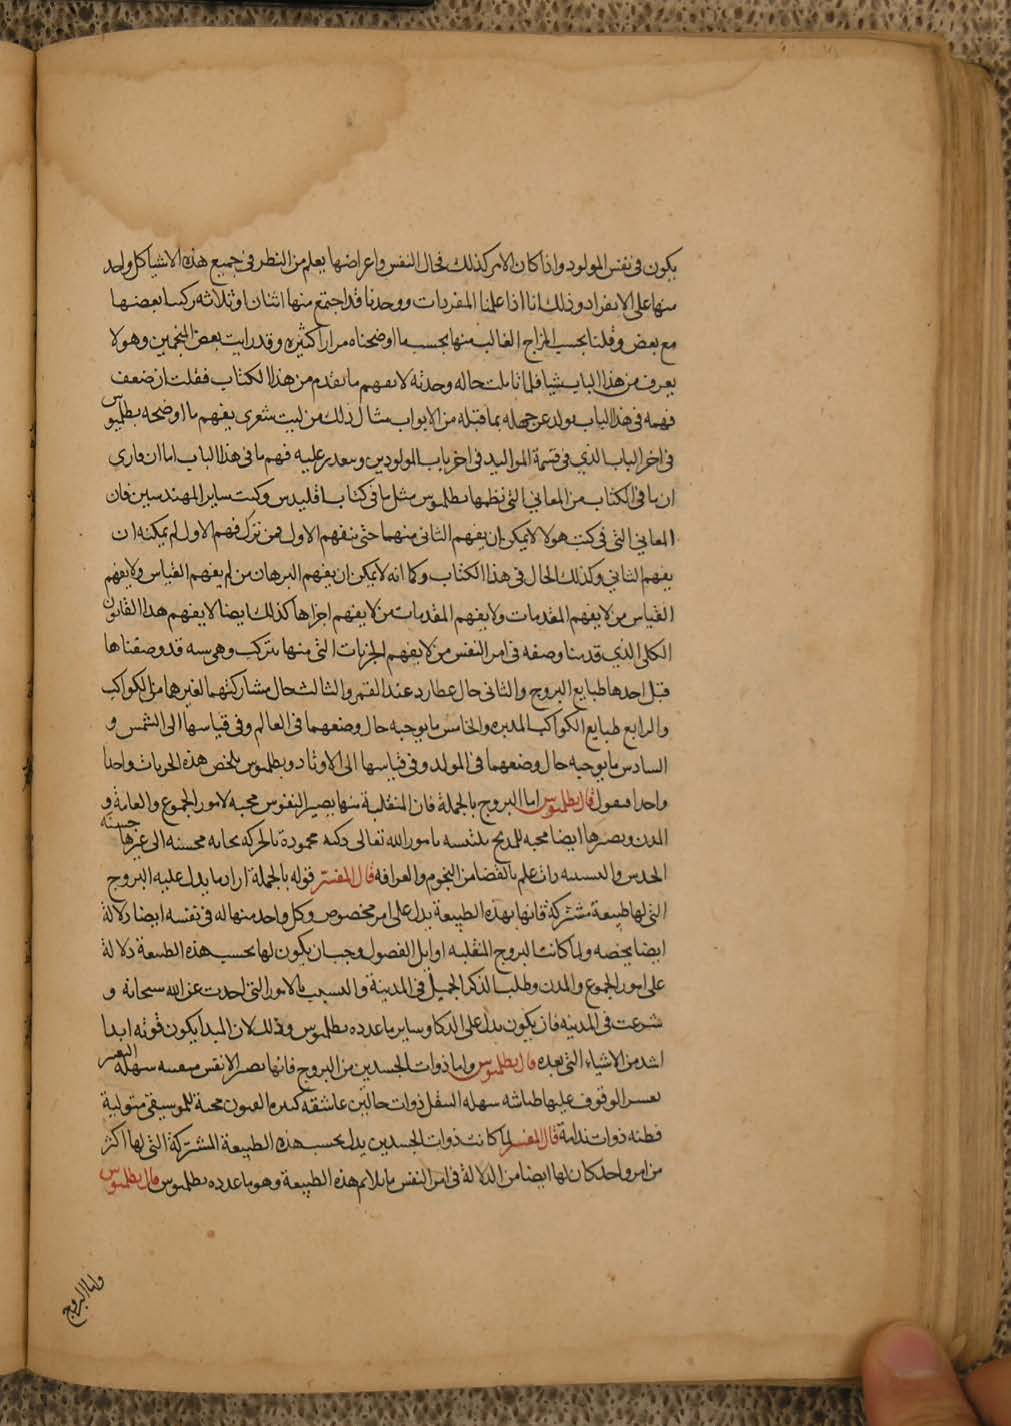 يكون فى نفس المولود واذا كان الامر كذلك فحال النفس واعراضها يعلم من النظر فى جميع هذه الاشيا كل واحد
منها على الانفراد وذلك انا اذا علمنا المفردات ووجدنا قد اجتمع منها اثنان او ثلاثه ركبنا بعضها
مع بعض وقلنا بحسب المزاج الغالب منها بحسب ما اوضحناه مرارا كثيره وقد رايت بعض المنجمين وهو لا
يعرف من هذا الباب شيا فلما تاملت حاله وجدته لا يفهم ما تقدم من هذا الكتاب فقلت ان ضعف
فهمه فى هذا الباب تولد عن جهله بما قبله من الابواب مثال ذلك من ليت شعرى يفهم ما اوضحه بطلميوس
فى اخر الباب الذي فى قسمة المواليد فى اخر باب المولودين ويتعذر عليه فهم ما فى هذا الباب اما ان قارى
ان ما فى الكتاب من المعاني التى نظمها بطلميوس مثل ما فى كتاب اقليدس وكتب ساير المهندسين فان
المعاني التى فى كتب هولا لا يمكن ان يفهم الثانى منهما حتى يتفهم الاول فمن ترك فهم الاول لم يمكنه ان
يفهم الثاني وكذلك الحال فى هذا الكتاب وكما انه لا يمكن ان يفهم البرهان من لم يفهم القياس ولا يفهم
القياس من لا يفهم المقدمات ولا يفهم المقدمات من لا يفهم اجزاها كذلك ايضا لا يفهم هذا القانون
الكلى الذي قدمنا وصفه فى امر النفس من لا يفهم الجزيات التى منها يتركب وهى سته قد وصفناها
قبل احدها طبايع البروج والثانى حال عطارد عند القمر والثالث حال مشاركتهما لغيرهما من الكواكب
والرابع طبايع الكواكب المدبره والخامس ما يوجبه حال وضعهما فى العالم وفى قياسها الى الشمس و
السادس ما يوجبه حال وضعهما فى المولد وفى قياسها الى الاوتاد وبطلميوس يلخص هذه الجزيات واحدا
واحدا فيقول قال بطلميوس اما البروج بالجملة فان المنقلبة منها يصير النفوس محبه لامور الجموع والعامة و
المدن ويصيرها ايضا محبه للمديح بامور الله تعالى ذكيه محمودة الحركه بحاثه محسنه الى غيرها حسنة
الحدس ذات علم بالقضا من النجوم والعرافه قال المفسر قوله بالجملة اراد ما يدل عليه البروج
التى لها طبيعة مشتركة فانها بهذه الطبيعة يدل على امر مخصوص وكل واحد منها له فى نفسه ايضا دلالة
ايضا يخصه ولما كانت البروج المنقلبه اوايل الفصول وجب ان يكون لها بحسب هذه الطبيعة دلالة
على امور الجموع والمدن وطلب الذكر الجميل فى المدينة والتسبب بالامور التى اخذت عن الله سبحانه و
شرعت فى المدينه فان يكون يدل على الذكا وساير ما عدده بطلميوس وذلك لان المبدا يكون قوته ابدا
اشد من الاشياء التى بعده قال بطلميوس واما ذوات الجسدين من البروج فانها تصير الانفس متفننه سهلة التغير
يعسر الوقوف عليها طياشه سهله النقل ذوات حالتين عاشقه كثيرة الفنون محبة للموسيقى متوانية
فطنه ذوات ندامة قال المفسر لما كانت ذوات الجسدين يدل بحسب هذه الطبيعة المشتركة التى لها اكثر
من امر واحد كان لها ايضا من الدلالة فى امر النفس ما يلايم هذه الطبيعة وهو ما عدده بطلميوس قال بطلميوس
واما البروج